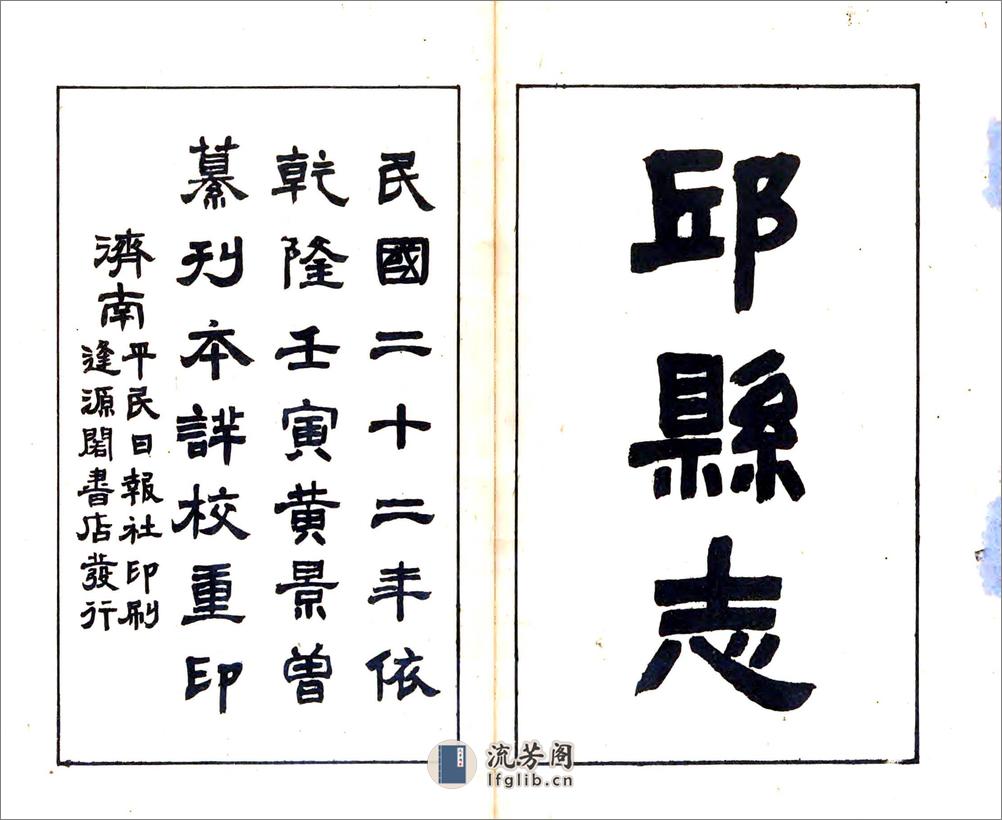 邱縣志
民國二十二年依
乾隆壬寅黃景曾
纂刊本詳校重印
濟南
平民日報社印刷
逢源閣書店發行
流芳阁
lfglib.cn